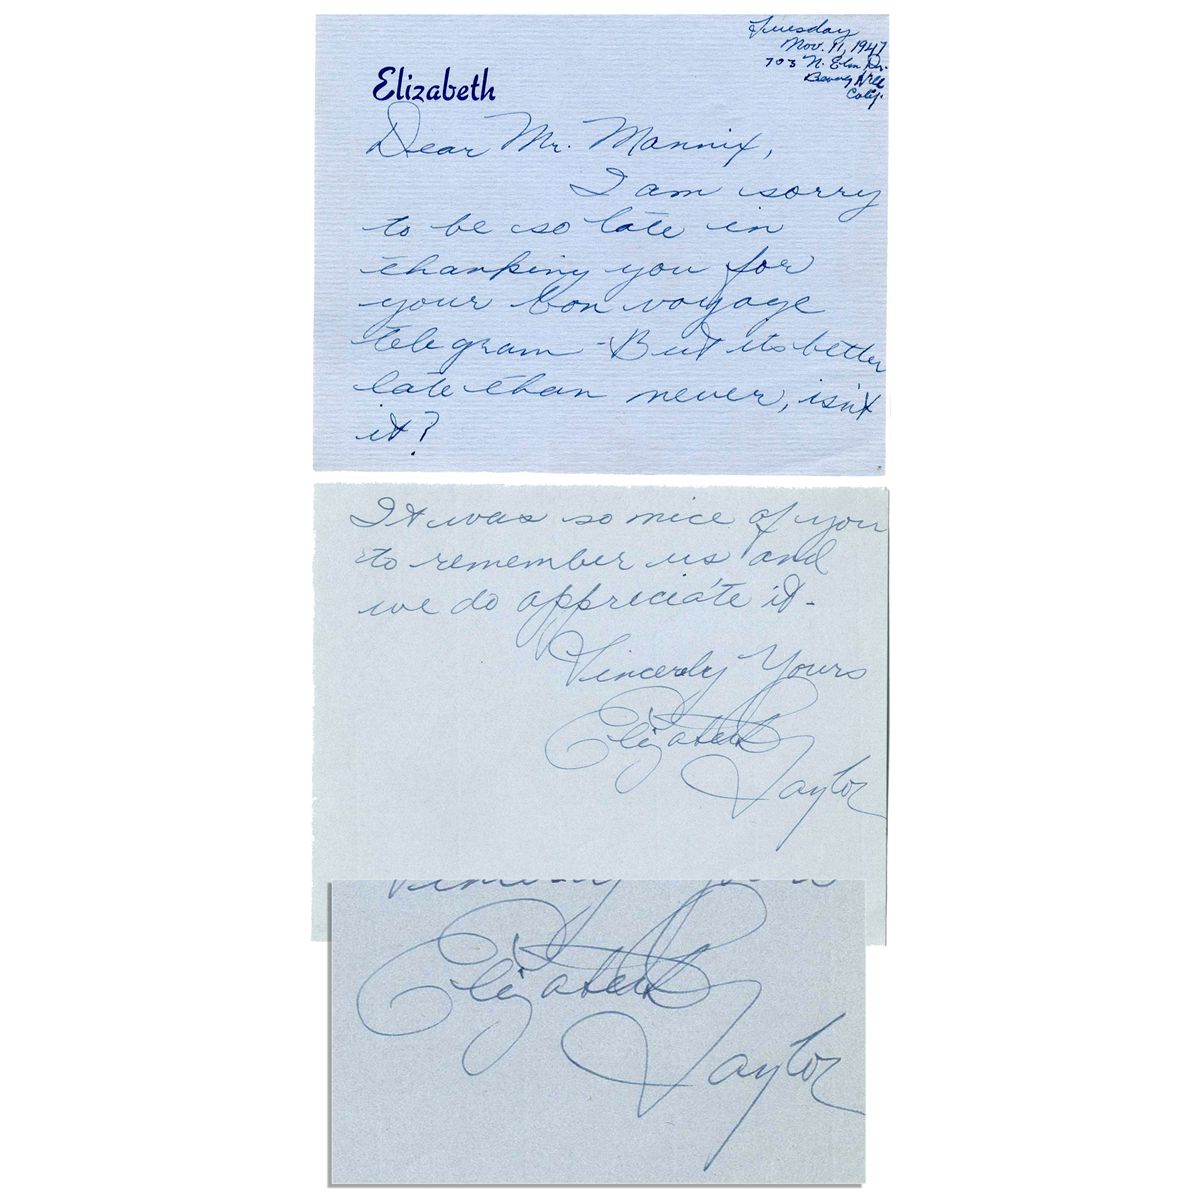 Tuesday
Nov. 11, 1947
703 N. Elm Dr.
Beverly Hills
Calif.
Elizabeth
Dear Mr. Mannix,
I am sorry
to be so late in
thanking you for
your bon voyage
telegram - But its better
late than never, isn't
it?
It was so nice of you
to remember us and
we do appreciate it -
Sincerely Yours
Elizabeth
Taylor
Sincerely Yours
Elizabeth
Taylor